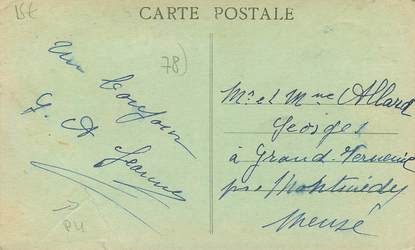 15€
CARTE POSTALE
78)
Un bonjour
G. A Jeanne
PLI
Mr et Mme Allard
Georges
à Grand-Verneuil
par Montmédy
Meuse